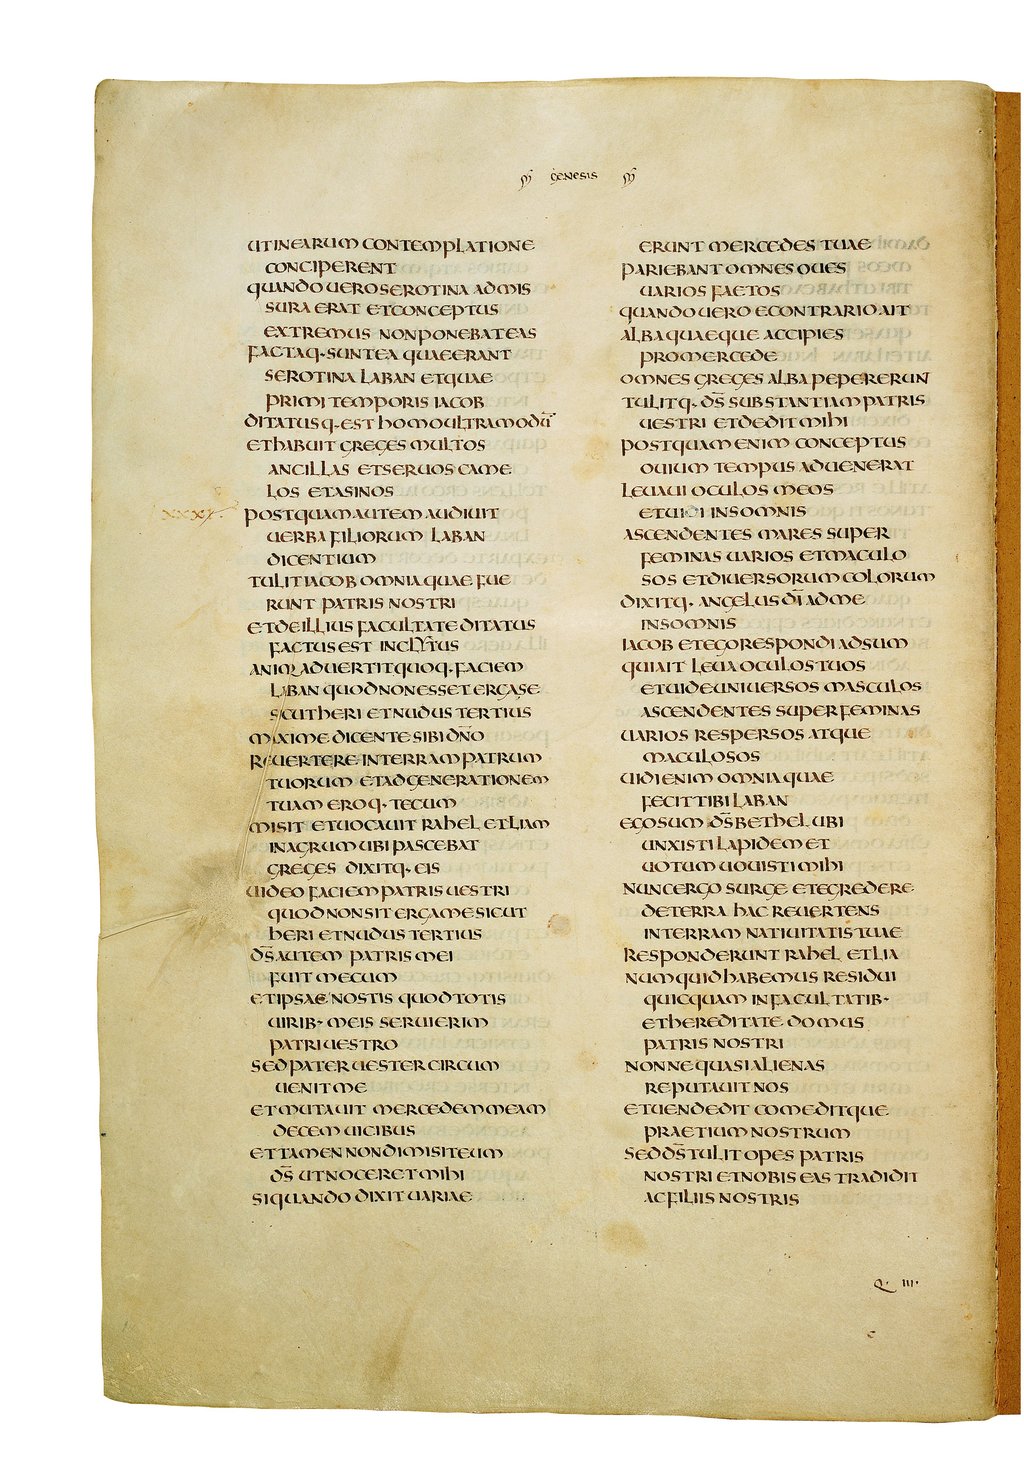 GENESIS
UT IN EARUM CONTEMPLATIONE
CONCIPERENT
QUANDO UERO SEROTINA ADMIS
SURA ERAT ET CONCEPTUS
EXTREMUS NON PONEBAT EAS
FACTAQ· SUNT EA QUAE ERANT
SEROTINA LABAN ET QUAE
PRIMI TEMPORIS IACOB
DITATUSQ· EST HOMO ULTRA MODŪ
ET HABUIT GREGES MULTOS
ANCILLAS ET SERUOS CAME
LOS ET ASINOS
POSTQUAM AUTEM AUDIUIT
UERBA FILIORUM LABAN
DICENTIUM
TULIT IACOB OMNIA QUAE FUE
RUNT PATRIS NOSTRI
ET DE ILLIUS FACULTATE DITATUS
FACTUS EST INCLYTUS
ANIMADUERTIT QUOQ· FACIEM
LABAN QUOD NON ESSET ERGA SE
SICUT HERI ET NUDUS TERTIUS
MAXIME DICENTE SIBI DN̄O
REUERTERE IN TERRAM PATRUM
TUORUM ET AD GENERATIONEM
TUAM EROQ· TECUM
MISIT ET UOCAUIT RAHEL ET LIAM
IN AGRUM UBI PASCEBAT
GREGES DIXITQ· EIS
UIDEO FACIEM PATRIS UESTRI
QUOD NON SIT ERGA ME SICUT
HERI ET NUDUS TERTIUS
DS̄ AUTEM PATRIS MEI
FUIT MECUM
ET IPSAE NOSTIS QUOD TOTIS
UIRIB· MEIS SERUIERIM
PATRI UESTRO
SED PATER UESTER CIRCUM
UENIT ME
ET MUTAUIT MERCEDEM MEAM
DECEM UICIBUS
ET TAMEN NON DIMISIT EUM
DS̄ UT NOCERET MIHI
SI QUANDO DIXIT UARIAE
ERUNT MERCEDES TUAE
PARIEBANT OMNES OUES
UARIOS FAETOS
QUANDO UERO E CONTRARIO AIT
ALBA QUAEQUE ACCIPIES
PRO MERCEDE
OMNES GREGES ALBA PEPERERUNT
TULITQ· DS̄ SUBSTANTIAM PATRIS
UESTRI ET DEDIT MIHI
POSTQUAM ENIM CONCEPTUS
OUIUM TEMPUS ADUENERAT
LEUAUI OCULOS MEOS
ET UIDI IN SOMNIS
ASCENDENTES MARES SUPER
FEMINAS UARIOS ET MACULO
SOS ET DIUERSORUM COLORUM
DIXITQ· ANGELUS DĪ AD ME
IN SOMNIS
IACOB ET EGO RESPONDI ADSUM
QUI AIT LEUA OCULOS TUOS
ET UIDE UNIUERSOS MASCULOS
ASCENDENTES SUPER FEMINAS
UARIOS RESPERSOS ATQUE
MACULOSOS
UIDI ENIM OMNIA QUAE
FECIT TIBI LABAN
EGO SUM DS̄ BETHEL UBI
UNXISTI LAPIDEM ET
UOTUM UOUISTI MIHI
NUNC ERGO SURGE ET EGREDERE
DE TERRA HAC REUERTENS
IN TERRAM NATIUITATIS TUAE
RESPONDERUNT RAHEL ET LIA
NUM QUID HABEMUS RESIDUI
QUICQUAM IN FACULTATIB·
ET HEREDITATE DOMUS
PATRIS NOSTRI
NONNE QUASI ALIENAS
REPUTAUIT NOS
ET UENDEDIT COMEDITQUE
PRAETIUM NOSTRUM
SED DS̄ TULIT OPES PATRIS
NOSTRI ET NOBIS EAS TRADIDIT
AC FILIIS NOSTRIS
Q· III·